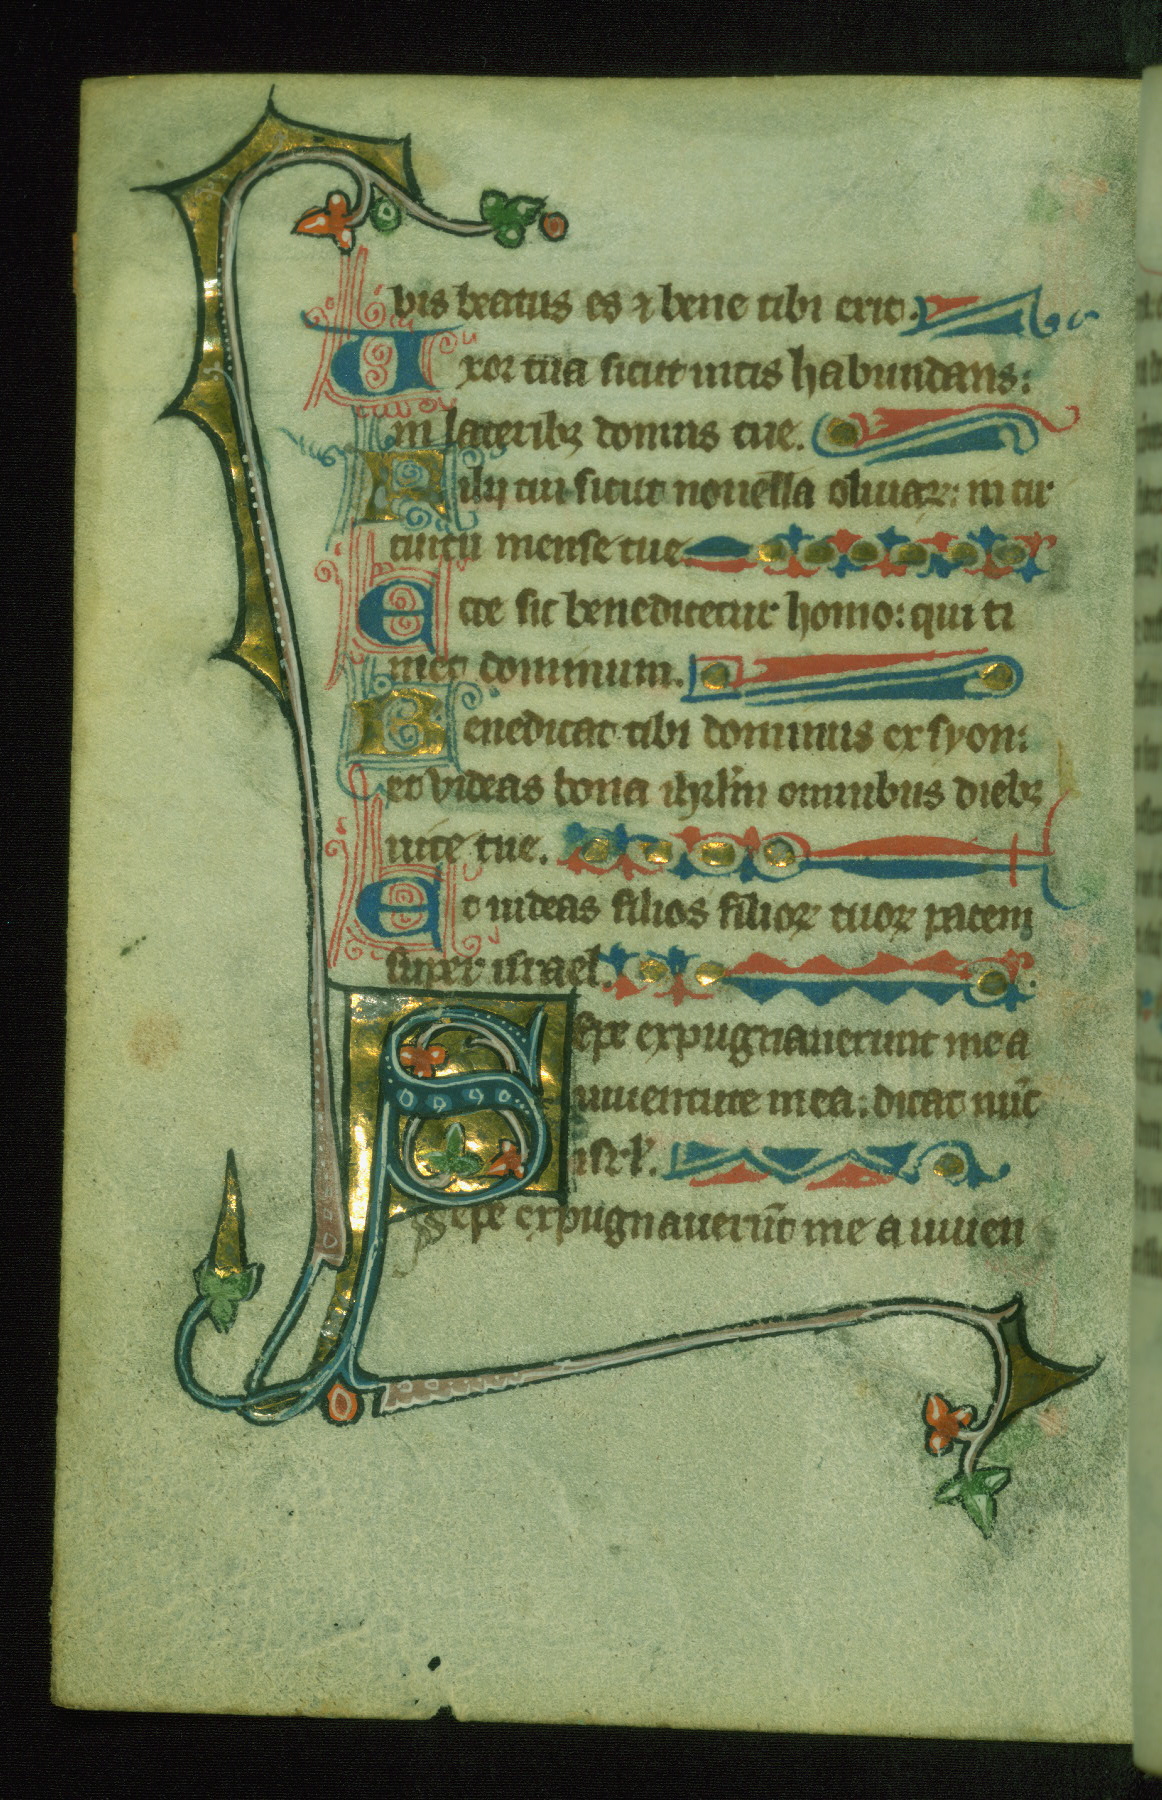 bis beatus es ⁊ bene tibi erit.
Uxor tua sicut uitis habundans:
in lateribꝫ domus tue.
Filij tui sicut nouella oliuaꝝ: in cir
cuitu mense tue.
Ecce sic benedicetur homo: qui ti
met dominum.
Benedicat tibi dominus ex syon:
et videas bona ihrl̅m omnibus diebꝫ
uite tue.
Et uideas filios filioꝝ tuoꝝ pacem
super israel.
Sepe expugnauerunt me a
iuuentute mea: dicat nūc
isrl̓.
Sepe expugnauerūt me a iuuen